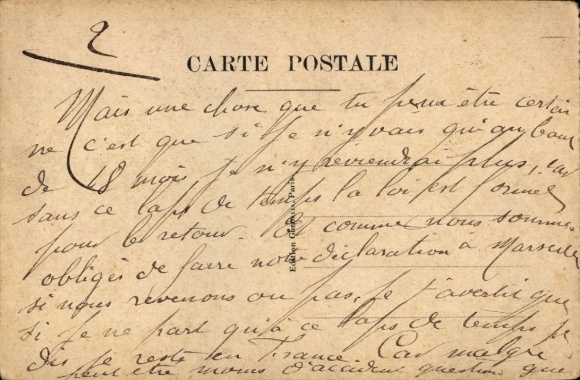 2
CARTE POSTALE
Mais une chose que tu peux être certai
ne c'est que si je n'y vais qu'au bout
de 18 mois je n'y reviendrai plus, car
dans ce laps de temps la loi est formel
pour le retour. Et comme nous sommes
obligés de faire notre déclaration à Marseille
si nous revenons ou pas, je t'avertit que
si je ne part qu'à ce laps de temps je
dis je reste en France. Car malgré
peut être moins d'accident question que
Edition Paris